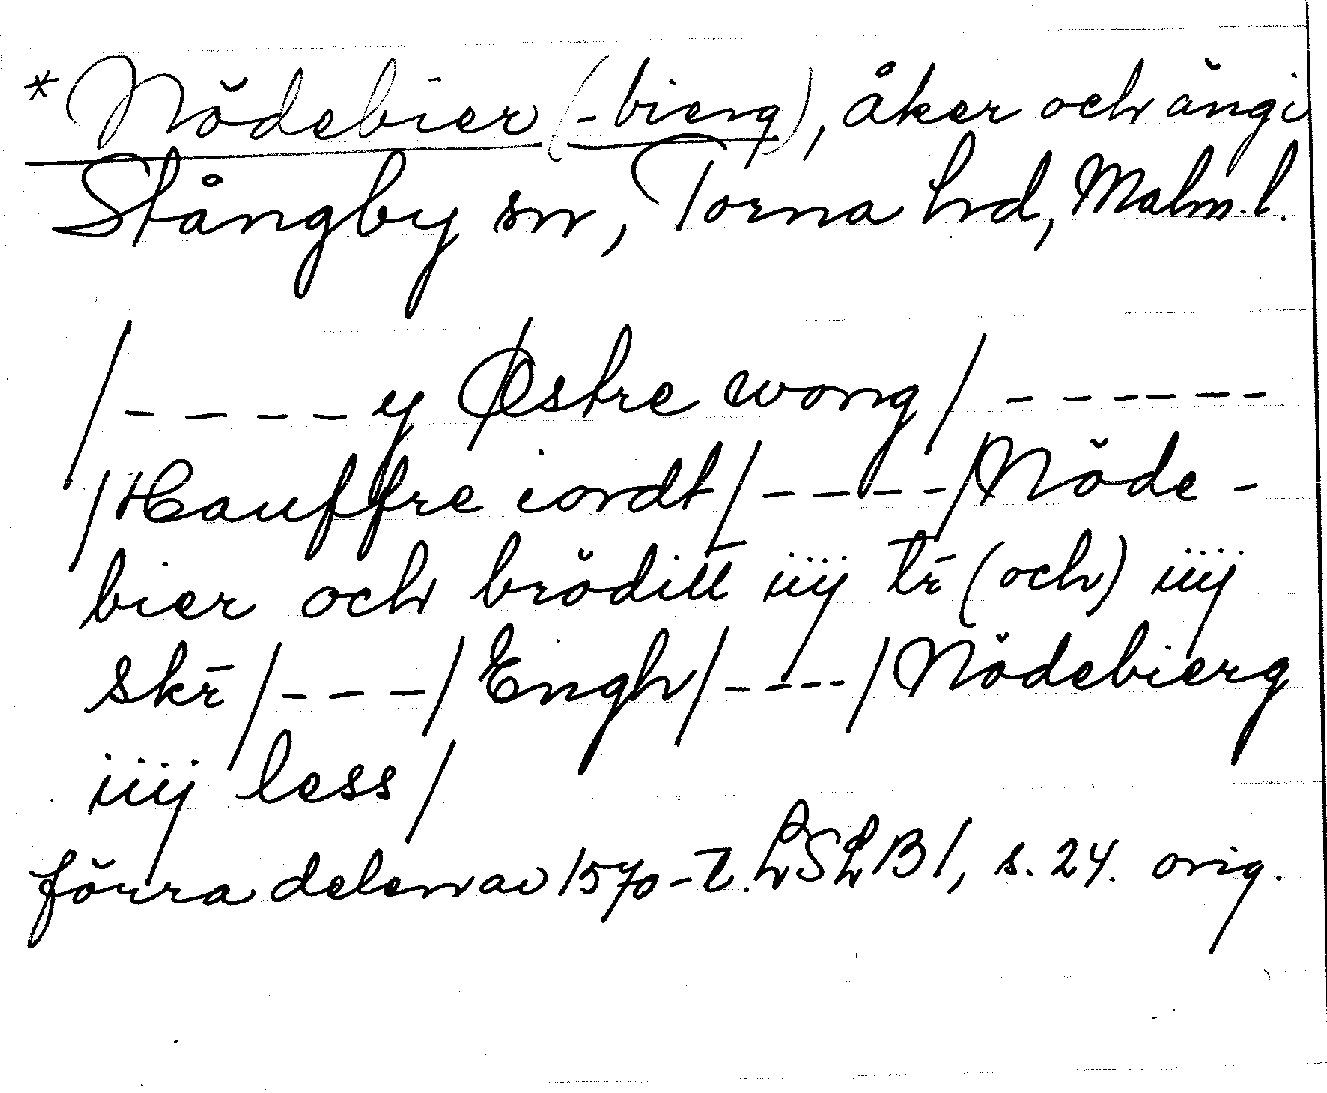 * Nödebier (-bierg), åker och äng i
Stångby sn, Torna hd, Malm. l.
/ - - - - y Østre wong / - - - - - -
/ Hauffre iordt / - - - - / Nöde -
bier och bröditt iiij tr̄ (och) iiij
skr̄ / - - - / Engh / - - - - / Nödebierg
iiij less /
förra delen av 1570-t. LSLB 1, s. 24. orig.